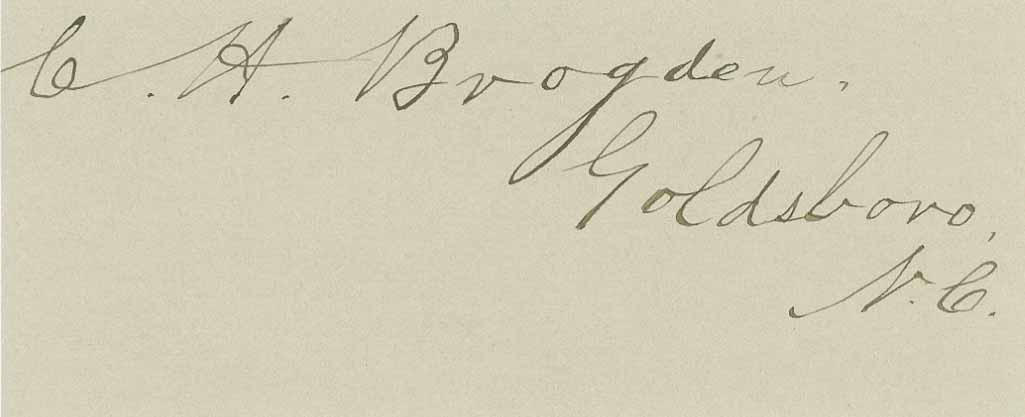 C. H. Brogden.
Goldsboro,
N. C.